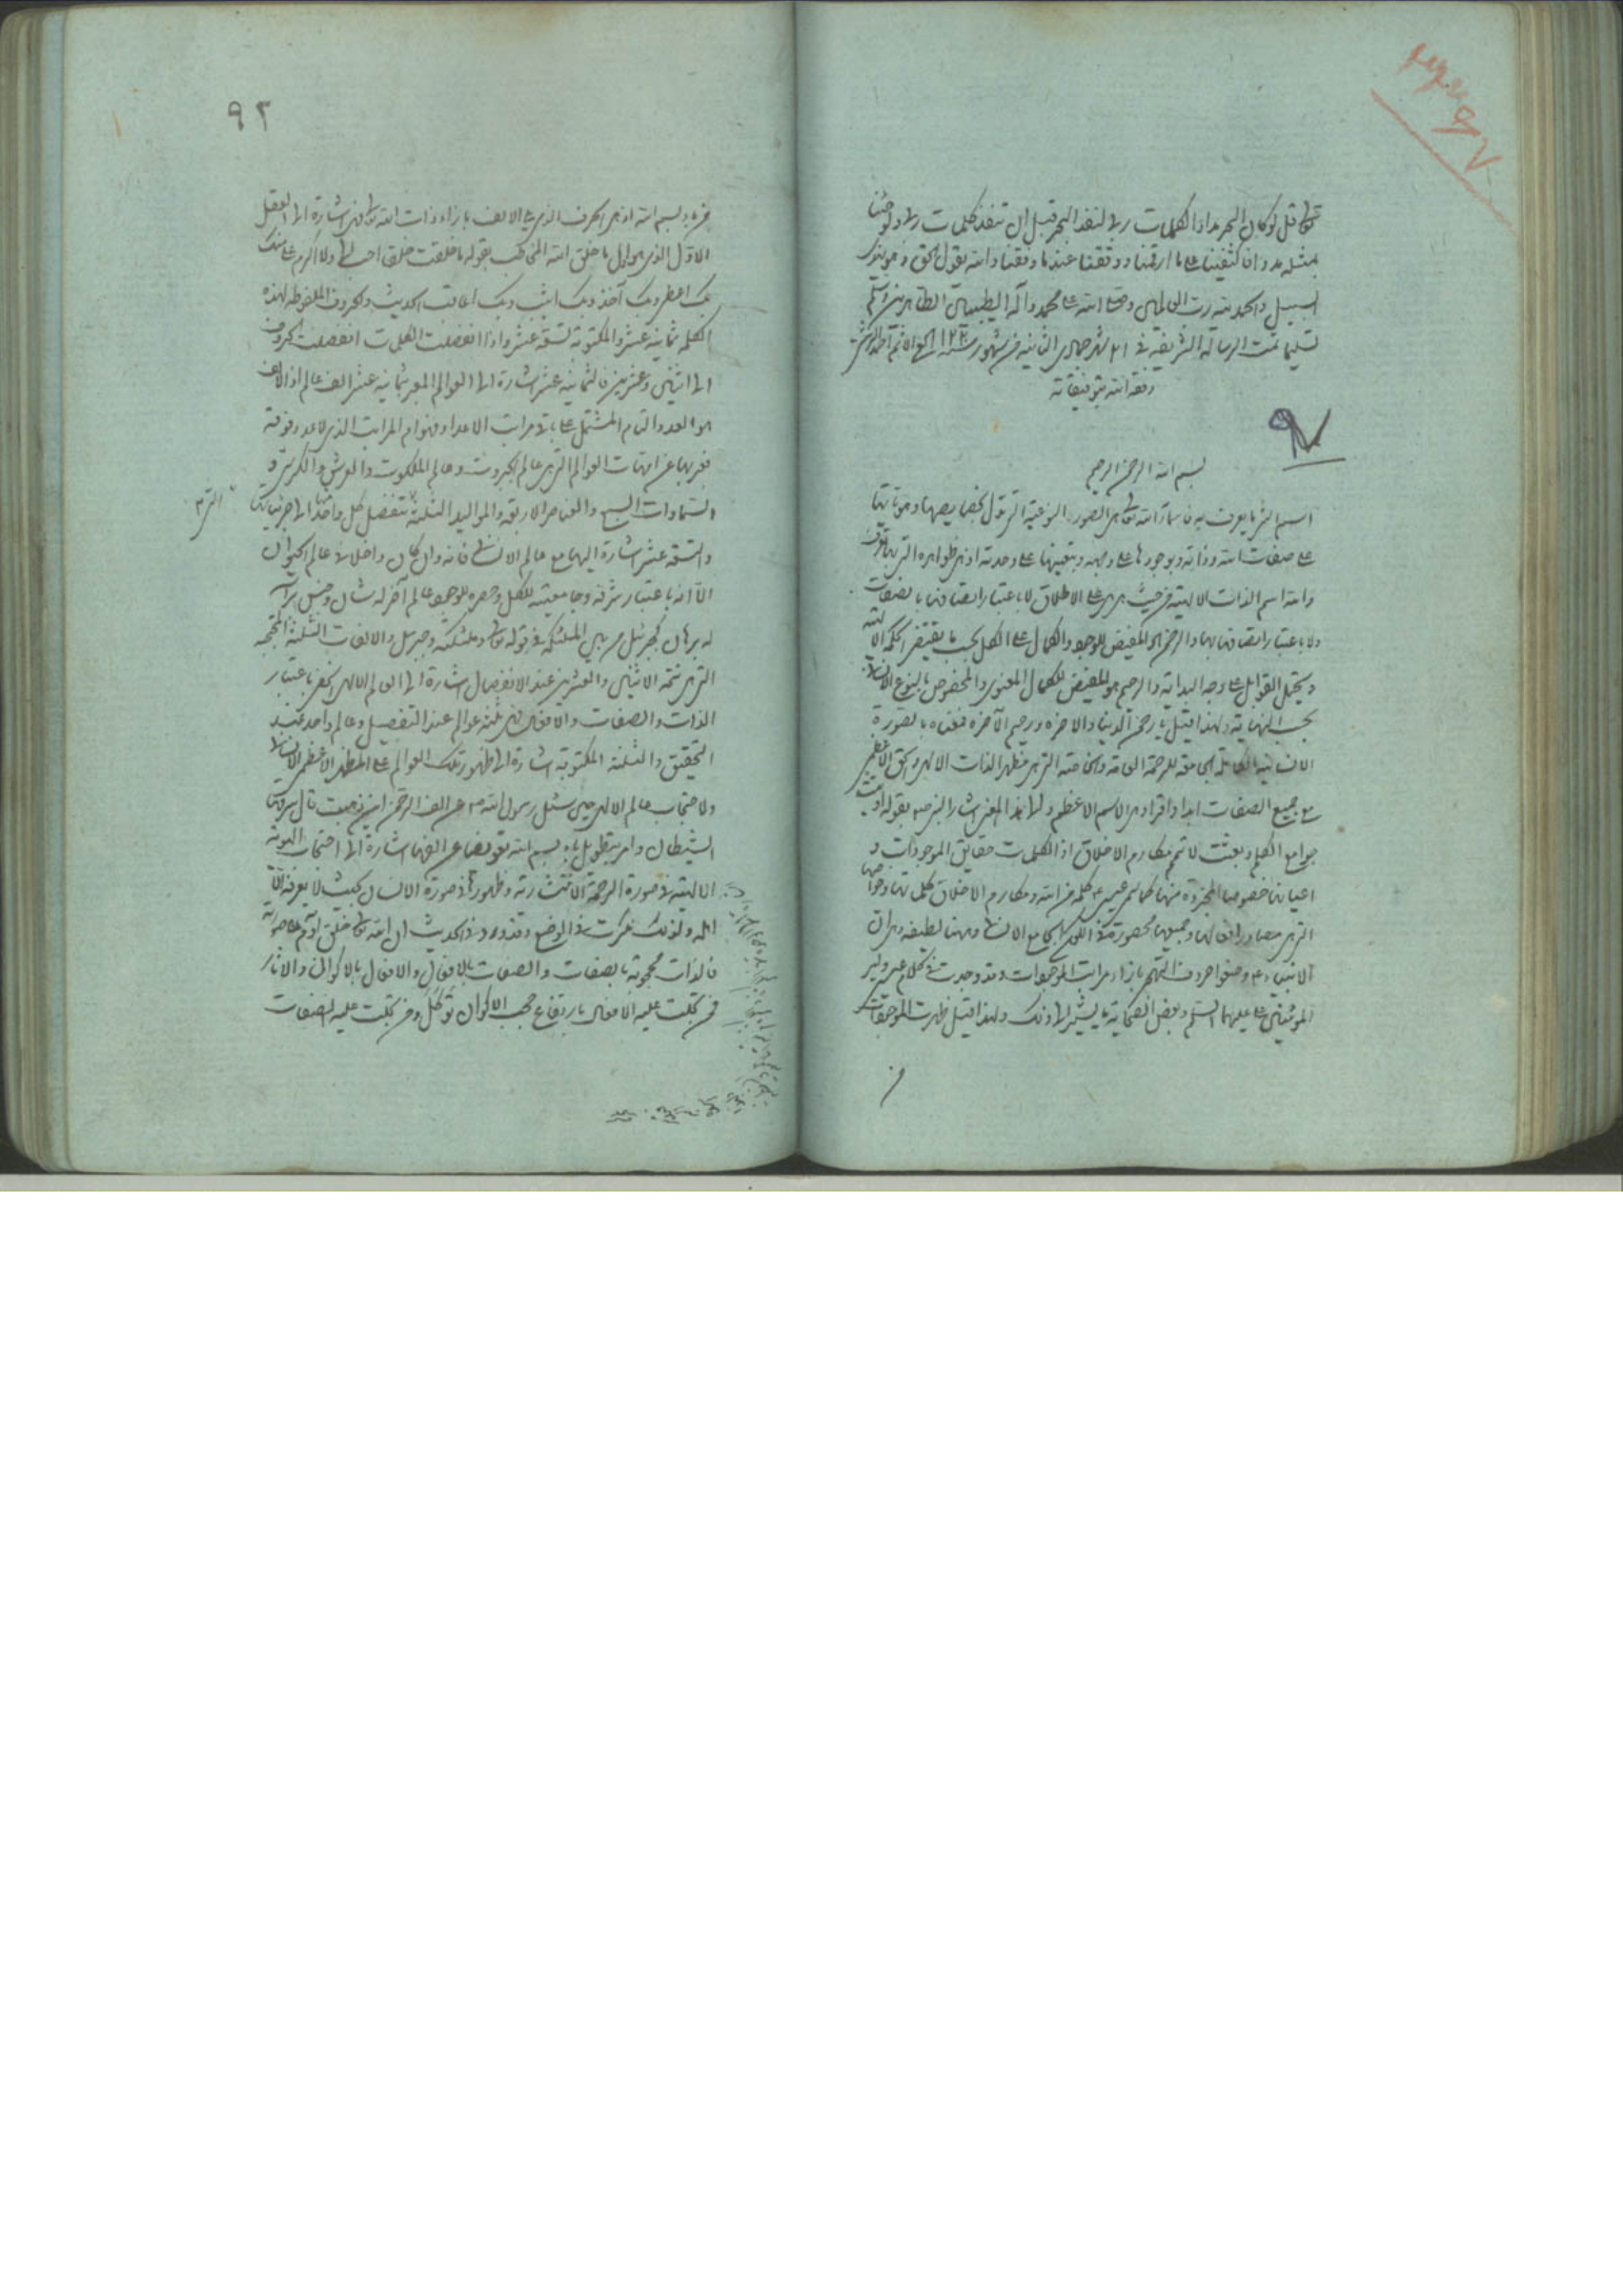 تعالی قل لو کان البحر مدادا لکلمات ربی لنفد البحر قبل ان تنفد کلمات ربی ولو جئنا
بمثله مددا فاکتفینا علی ما وقفنا عندما وقفنا والله یقول الحق و هو یهدی
السبیل والحمد لله رب العالمین وصلی الله علی محمد وآله الطیبین الطاهرین وسلم
تسلیما تمت الرسالة الشریفة فی ۲۱ شهر جمادی الثانیة من شهور سنه
وفقه الله بتوفیقاته
۹۷
بسم الله الرحمن الرحیم
اسم الشی ما یعرف به فاسماء الله تعالی هی الصور النوعیة التی تدل بخصایصها وهویاتها
علی صفات الله وذاته وبوجودها علی وجهه وبتعینها علی وحدته اذ هی ظواهره التی بها یعرف
والله اسم الذات الالهیة من حیث هی هی علی الاطلاق لا باعتبار اتصافها بالصفات
ولا باعتبار لا اتصافها بها والرحمن هو المفیض للوجود والکمال علی الکل بحسب ما یقتضی الحکمة الالهیة
ویحتمل القوابل علی وجه البدایة والرحیم هو المفیض للکمال المعنوی المخصوص بالنوع الانسانی
بحسب النهایة ولهذا قیل یا رحمن الدنیا والاخرة ورحیم الآخرة فمعناه بالصورة
الانسانیة الکاملة الجامعة للرحمة العامة والخاصة التی هی مظهر الذات الالهی والحق الاعظمی
مع جمیع الصفات ابدا واقرا وهی الاسم الاعظم ولهذا المعنی اشار النبی ص بقوله اوتیت
جوامع الکلم وبعثت لاتمم مکارم الاخلاق اذ الکلمات حقایق الموجودات و
اعیانها خصوصا المجردة منها کما سمی عیسی ع کلمة من الله ومکارم الاخلاق کمالاتها وخواصها
التی هی مصادر افعالها وجمیعها محصورة فی الکون الجامع الانسانی وههنا لطیفة وهی ان
الانبیاء ع وضعوا حروف التهجی بازاء مراتب الموجودات وقد وجدت فی کلام عیسی وامیر
المؤمنین علی علیهما السلم وبعض الصحابة ما یشیر الی ذلک ولهذا قیل ظهرت الموجودات
من
۹۲
من باء بسم الله اذ هی الحرف الذی یلی الالف بازاء ذات الله تعالی فهی اشارة الی العقل
الاول الذی هو اول ما خلق الله المخاطب بقوله ما خلقت خلقا احب الی ولا اکرم علی منک
بک اعطی وبک آخذ وبک اثیب وبک اعاقب الحدیث والحروف الملفوظة لهذه
الکلمة ثمانیة عشر والمکتوبة تسعة عشر واذا انفصلت الکلمات انفصلت الحروف
الی اثنین وعشرین فالثمانیة عشر اشارة الی العوالم المعبر بثمانیة عشر الف عالم اذ الالف
هو العدد التام المشتمل علی باقی مراتب الاعداد فهو ام المراتب الذی لا عدد فوقه
فعبر بها عن امهات العوالم التی هی عالم الجبروت وعالم الملکوت والعرش والکرسی و
السماوات السبع والعناصر الاربعة والموالید الثلثة ینفصل کل واحد منها الی جزئیاتها
والتسعة عشر اشارة الیها مع عالم الانسانی فانه وان کان داخلا فی عالم الحیوان
الا انه باعتبار شرفه وجامعیته للکل وحصره للوجود عالم آخر له شان وجنس برأسه
له برهان کجبرئیل من بین الملئکة فی قوله تعالی وملئکته وجبریل والالفات الثلثة المحتجبة
التی هی تتمة الاثنین والعشرین عند الانفصال اشارة الی العالم الالهی الحق باعتبار
الذات والصفات والافعال فهی ثلثة عوالم عند التفصیل وعالم واحد عند
التحقیق والثلثة المکتوبة اشارة الی ظهور تلک العوالم علی المظهر الاعظمی الانسانی
ولاحتجاب عالم الالهی حین سئل رسول الله ص عن الف الرحمن این ذهبت قال سرقها
الشیطان وامر بتطویل باء بسم الله تعویضا عن الفها اشارة الی احتجاب الهویة
الالهیة فی صورة الرحمة الانتشاریة وظهورها فی صورة الانسان بحیث لا یعرفه الا
اهله ولذلک نکرت فی الوضع وقد ورد فی الحدیث ان الله تعالی خلق آدم علی صورته
فالذات محجوبة بالصفات والصفات بالافعال والافعال بالاکوان والاثار
فمن تجلت علیه الافعال بارتفاع حجب الاکوان توکل ومن تجلت علیه الصفات